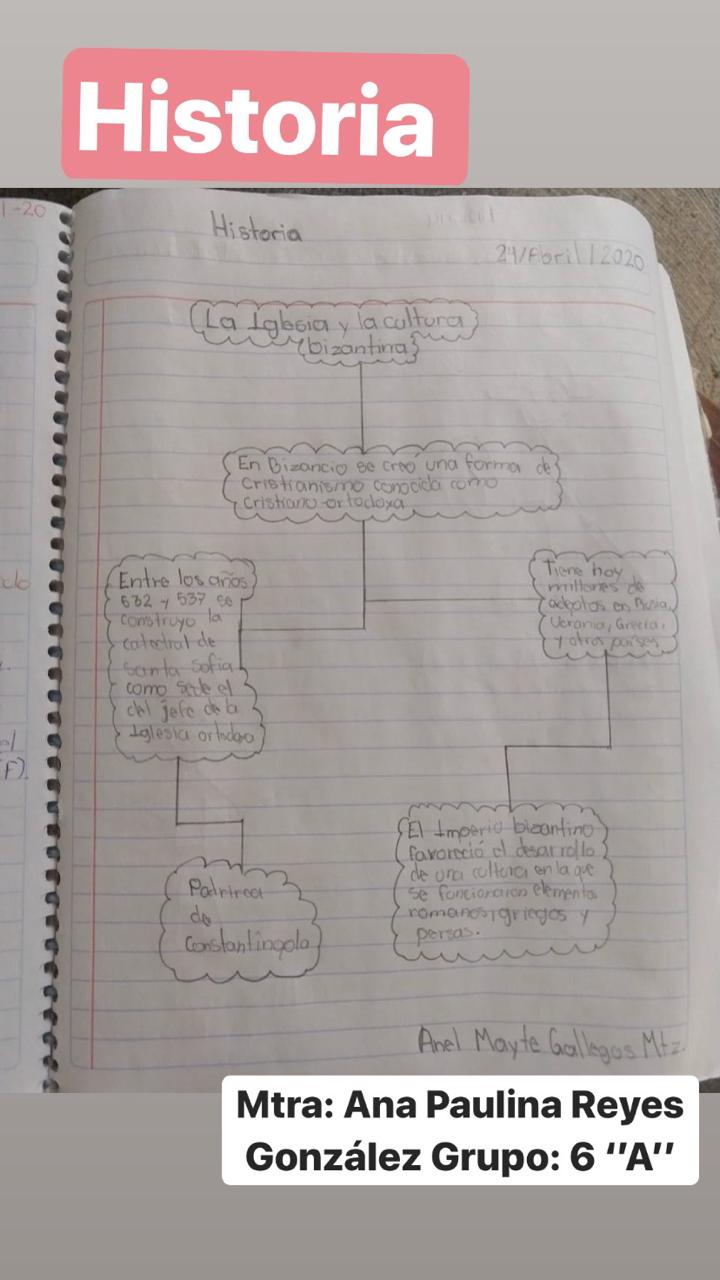 Historia
1-20
Historia
24/Abril/2020
La Iglesia y la cultura
bizantina
En Bizancio se creó una forma de
Cristianismo conocida como
cristiano ortodoxa
Entre los años
532 y 537 se
construyo la
catedral de
Santa Sofia
como sede el
del jefe de la
Iglesia ortodoxo
Tiene hoy
millones de
adeptos en Rusia,
Ucrania, Grecia,
y otros países
Patrirca
de
Constantinopla
El Imperio bizantino
favoreció el desarrollo
de una cultura en la que
se funcionaron elementos
romanos, griegos y
persas.
F).
Anel Mayte Gallegos Mtz.
Mtra: Ana Paulina Reyes
González Grupo: 6 ‘‘A’’